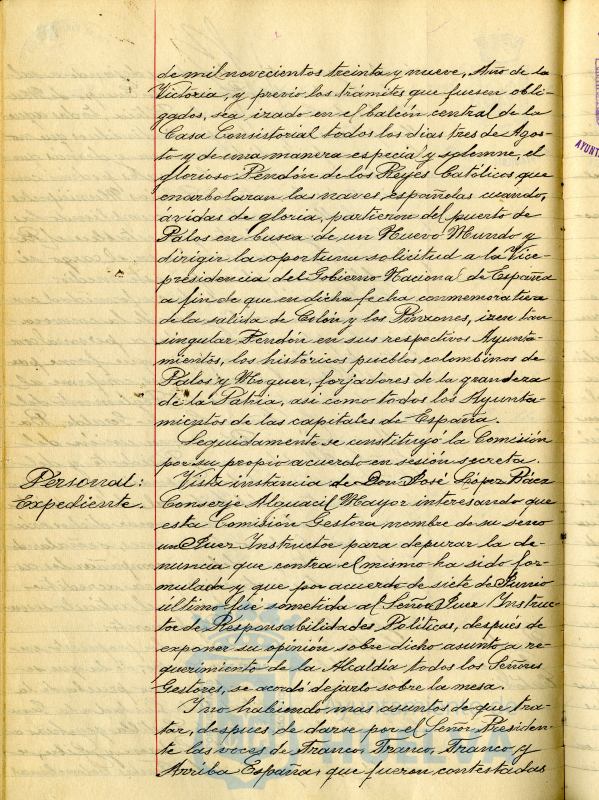 de mil novecientos treinta y nueve, Año de la
Victoria, y previo los trámites que fuesen obli-
gados, sea izado en el balcón central de la
Casa Consistorial todos los dias tres de Agos-
to y de una manera especial y solemne, el
glorioso Pendón de los Reyes Católicos que
enarbolaran las naves españolas cuando,
avidas de gloria, partieron del puerto de
Palos en busca de un Nuevo Mundo y
dirigir la oportuna solicitud a la Vice-
presidencia del Gobierno Nacional de España
a fin de que en dicha fecha conmemorativa
de la salida de Colón y los Pinzones, izen tan
singular Pendón en sus respectivos Ayunta-
mientos, los históricos pueblos colombinos de
Palos y Moguer, forjadores de la grandeza
de la Patria, asi como todos los Ayunta-
mientos de las capitales de España.
Seguidamente se constituyó la Comisión
por su propio acuerdo en sesión secreta.
Personal:
Expediente.
Vista instancia de Don José López Báez
Conserje Alguacil Mayor interesando que
esta Comisión Gestora nombre de su seno
un Juez Instructor para depurar la de-
nuncia que contra el mismo ha sido for-
mulada y que por acuerdo de siete de Junio
último fué sometida al Señor Juez Instruc-
tor de Responsabilidades Políticas, después de
exponer su opinión sobre dicho asunto a re-
querimiento de la Alcaldía todos los Señores
Gestores, se acordó dejarlo sobre la mesa.
Y no habiendo mas asuntos de que tra-
tar, despues de darse por el Señor Presiden-
te las voces de Franco, Franco, Franco y
Arriba España, que fueron contestadas
AYUNT